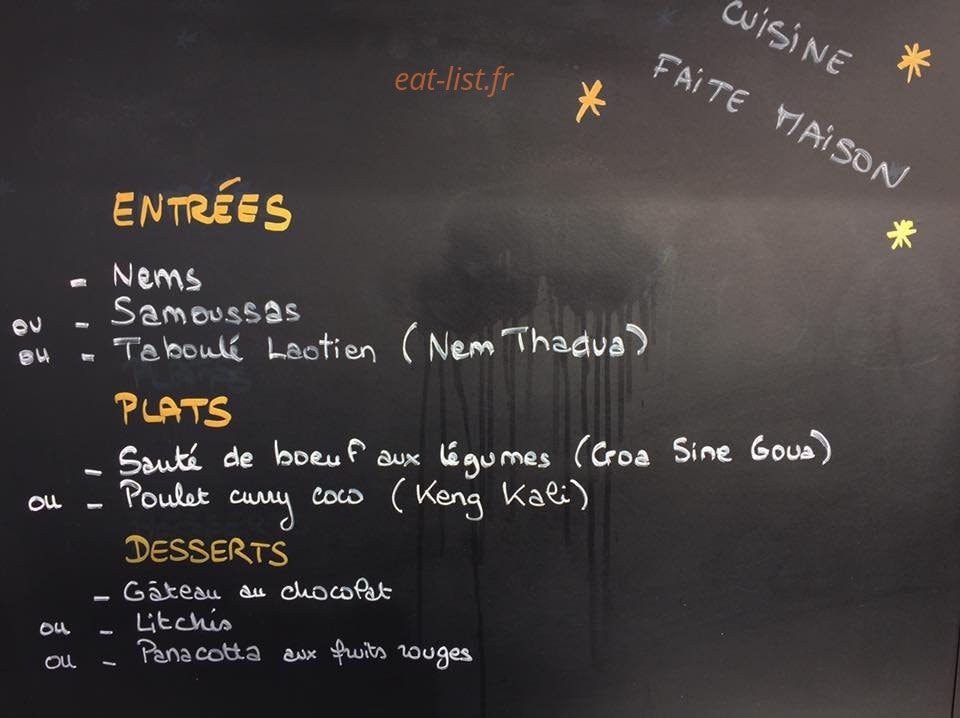 CUISINE
FAITE MAISON
eat-list.fr
ENTRÉES
- Nems
ou - Samoussas
ou - Taboulé Laotien (Nem Thadua)
PLATS
- Sauté de boeuf aux légumes (Goa Sine Goua)
ou - Poulet curry coco (Keng Kali)
DESSERTS
- Gâteau au chocolat
ou - Litchis
ou - Panacotta aux fruits rouges